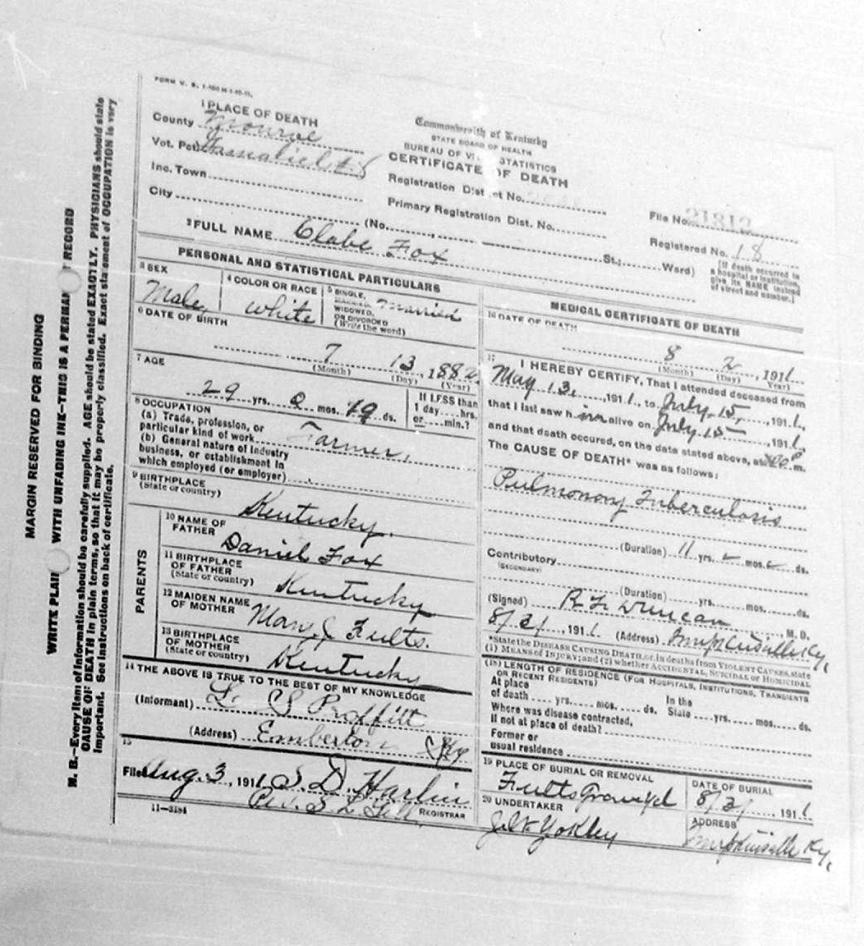 FORM V. S. 1-
1 PLACE OF DEATH
County Monroe
Vot. Pct.
Inc. Town
City
Commonwealth of Kentucky
STATE BOARD OF HEALTH
BUREAU OF VITAL STATISTICS
CERTIFICATE OF DEATH
Registration District No.
Primary Registration Dist. No.
File No. 21812
Registered No. 18
(No. St.; Ward)
[If death occurred in
a hospital or institution,
give its NAME instead
of street and number.]
2 FULL NAME Clabe Fox
PERSONAL AND STATISTICAL PARTICULARS
3 SEX
Male
4 COLOR OR RACE
White
5 SINGLE,
MARRIED,
WIDOWED,
OR DIVORCED
(Write the word)
Married
6 DATE OF BIRTH
7 13, 1882
(Month) (Day) (Year)
7 AGE
29 yrs. 0 mos. 19 ds.
If LESS than
1 day....hrs.
or....min.?
8 OCCUPATION
(a) Trade, profession, or
particular kind of work Farmer,
(b) General nature of industry
business, or establishment in
which employed (or employer)
9 BIRTHPLACE
(State or country)
Kentucky.
PARENTS
10 NAME OF
FATHER
Daniel Fox
11 BIRTHPLACE
OF FATHER
(State or country)
Kentucky
12 MAIDEN NAME
OF MOTHER
Mary J Fults.
13 BIRTHPLACE
OF MOTHER
(State or country)
Kentucky
14 THE ABOVE IS TRUE TO THE BEST OF MY KNOWLEDGE
(Informant) L. S Proffitt
(Address) Emberton Ky
15
Filed Aug. 3, 1911 S. D. Harlin
REGISTRAR
11-3184
MEDICAL CERTIFICATE OF DEATH
16 DATE OF DEATH
8 2, 1911
(Month) (Day) (Year)
17 I HEREBY CERTIFY, That I attended deceased from
May 13, 1911, to July 15, 1911,
that I last saw him alive on July 15, 1911,
and that death occured, on the date stated above, at m.
The CAUSE OF DEATH* was as follows:
Pulmonary Tuberculosis
(Duration) 11 yrs. mos. ds.
Contributory
(SECONDARY)
(Duration) yrs. mos. ds.
(Signed) R. F. Duncan M. D.
1911 (Address) Tompkinsville Ky,
*State the DISEASE CAUSING DEATH, or, in deaths from VIOLENT CAUSES, state
(1) MEANS OF INJURY; and (2) whether ACCIDENTAL, SUICIDAL or HOMICIDAL
(18) LENGTH OF RESIDENCE (FOR HOSPITALS, INSTITUTIONS, TRANSIENTS
OR RECENT RESIDENTS)
At place
of death yrs. mos. ds.
In the
State yrs. mos. ds.
Where was disease contracted,
if not at place of death?
Former or
usual residence
19 PLACE OF BURIAL OR REMOVAL
Fults Graveyd
DATE OF BURIAL
1911
20 UNDERTAKER
Yokley
ADDRESS
Tompkinsville Ky,
MARGIN RESERVED FOR BINDING
WRITE PLAI WITH UNFADING INK—THIS IS A PERMA T RECORD
N. B.—Every item of information should be carefully supplied. AGE should be stated EXACTLY. PHYSICIANS should state
CAUSE OF DEATH in plain terms, so that it may be properly classified. Exact statement of OCCUPATION is very
important. See instructions on back of certificate.